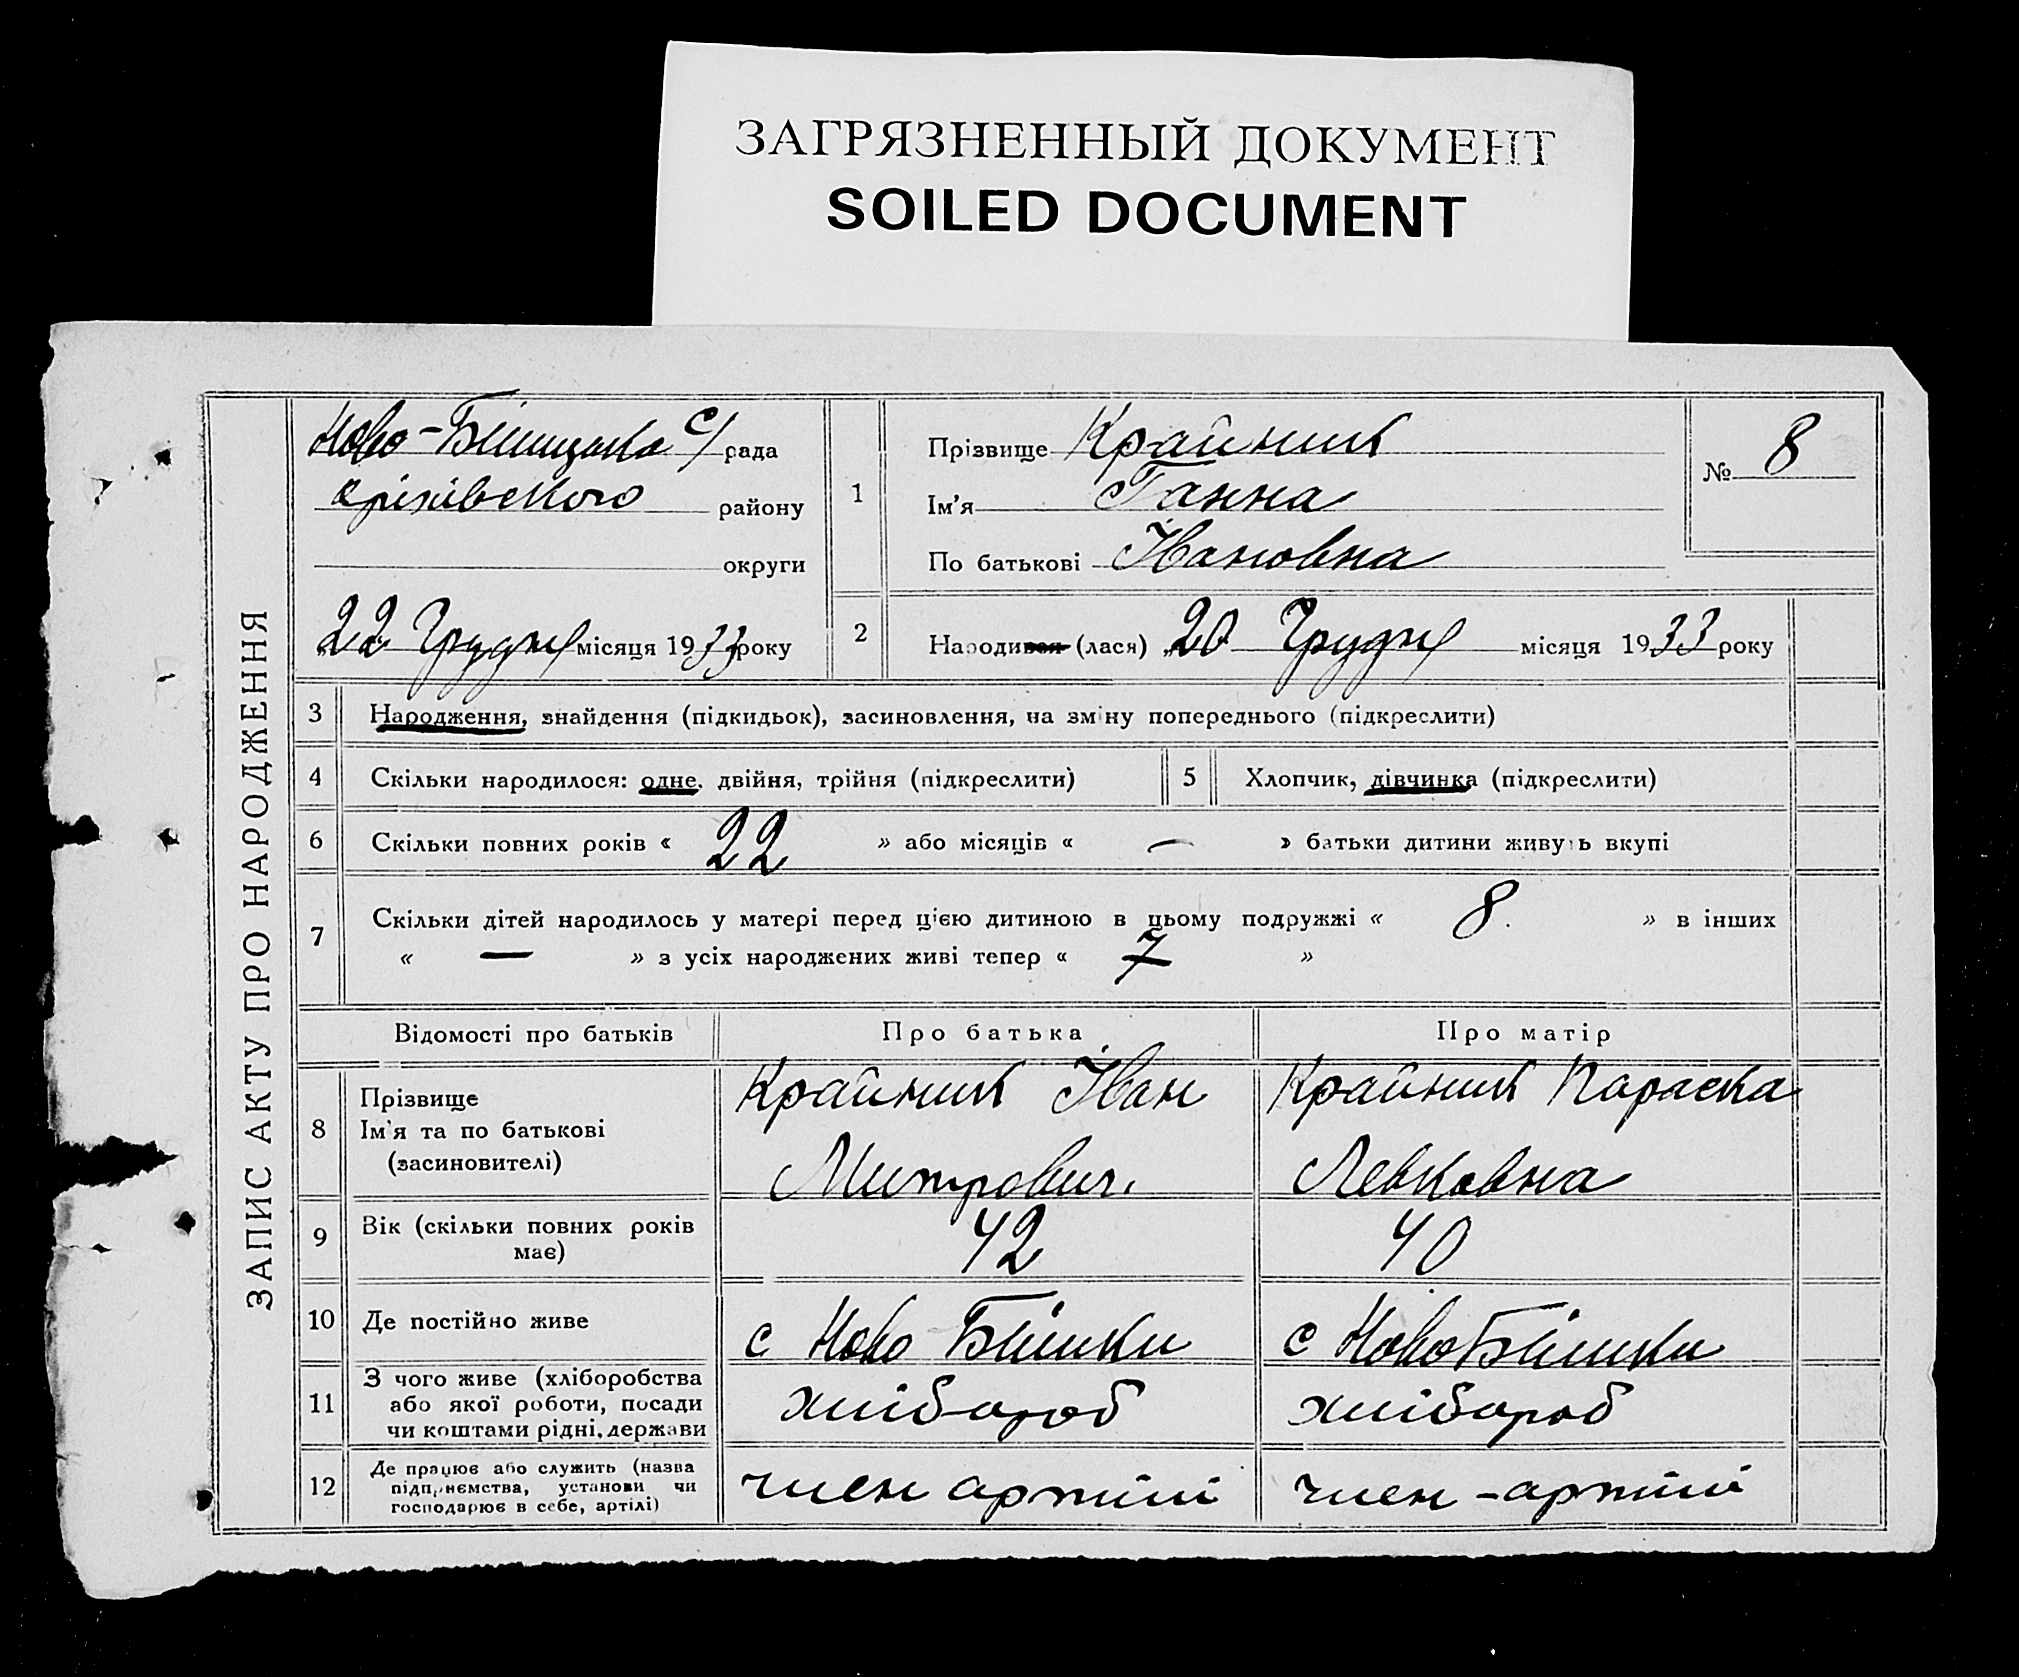 ЗАГРЯЗНЕННЫЙ ДОКУМЕНТ
SOILED DOCUMENT
ЗАПИС АКТУ ПРО НАРОДЖЕННЯ
Ново-Білицька с/рада
оріхівського району
округи
22 Грудня місяця 1933 року
1
Прізвище Крайник
Ім'я Ганна
По батькові Івановна
№ 8
2
Народився (лася) „20 Грудня місяця 1933 року
3 Народження, знайдення (підкидьок), засиновлення, на зміну попереднього (підкреслити)
4 Скільки народилося: одне, двійня, трійня (підкреслити) 5 Хлопчик, дівчинка (підкреслити)
6 Скільки повних років « 22 » або місяців « — » батьки дитини живуть вкупі
7 Скільки дітей народилось у матері перед цією дитиною в цьому подружжі « 8. » в інших
« — » з усіх народжених живі тепер « 7 »
Відомості про батьків Про батька Про матір
8 Прізвище
Ім'я та по батькові
(засиновителі)
Крайник Іван
Митрович.
Крайник Параска
Левковна
9 Вік (скільки повних років
має)
42
40
10 Де постійно живе
с Ново
с Ново
11 З чого живе (хліборобства
або якої роботи, посади
чи коштами рідні, держави
хлібороб
хлібороб
12 Де працює або служить (назва
підприємства, установи чи
господарює в себе, артілі)
член артілі
член - артілі